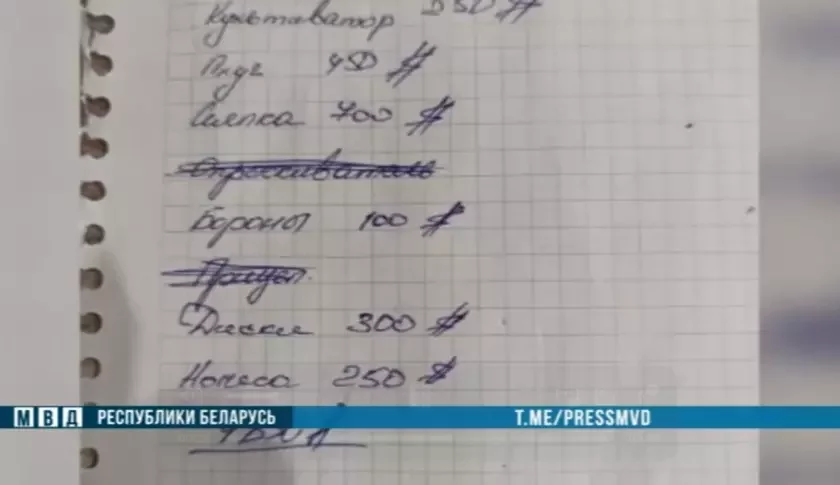 Культиватор
Плуг
Сеялка 700 $
Опрыскиватель
Бороны 100 $
Прицеп
Диски 300 $
Колеса 250 $
МВД РЕСПУБЛИКИ БЕЛАРУСЬ T.ME/PRESSMVD